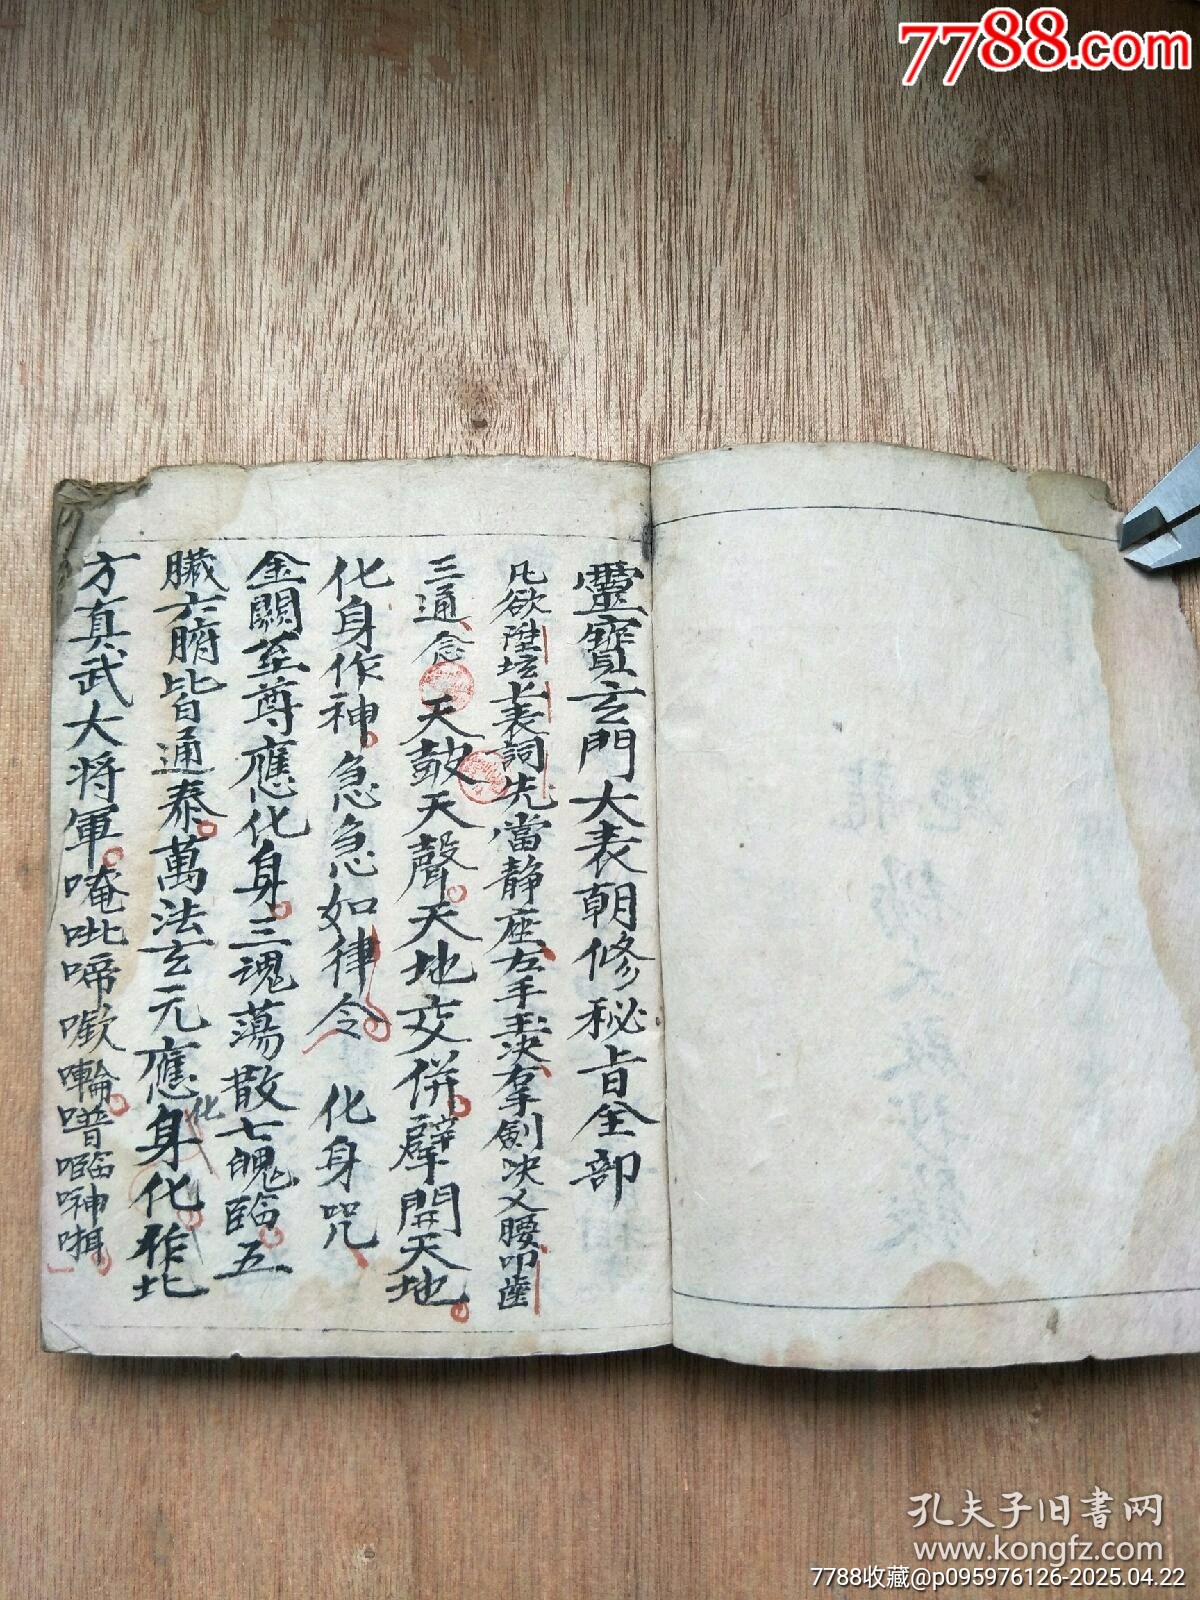 7788.com
靈寶玄門大表朝修秘旨全部
凡欲陞坛上表詞先當静座左手玉決右手剑决义腰叩齒
三通念 天鼓天聲天地交併劈開天地
化身作神急急如律令 化身咒
金闕至尊應化身三魂蕩散七魄臨五
臟六腑皆通泰萬法玄元應化身化作北
方真武大将軍唵吡啼㗲㘎噆㗲神㖇
孔夫子旧书网
www.kongfz.com
7788收藏@p095976126-2025.04.22